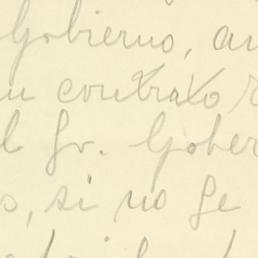 Gobierno, an
un contrato
l Sr. Gober
s, si no se